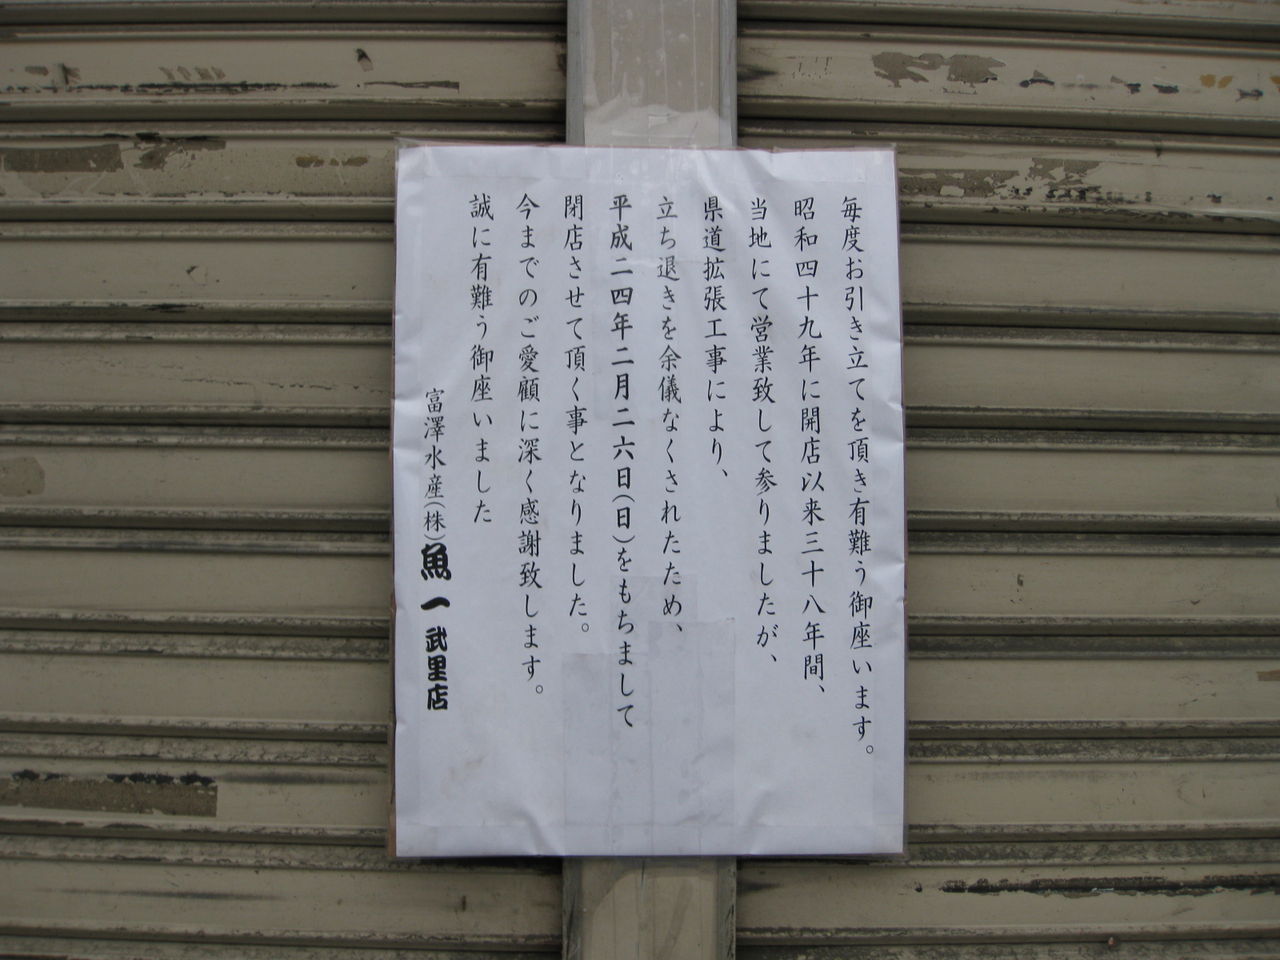 毎度お引き立てを頂き有難う御座います。
昭和四十九年に開店以来三十八年間、
当地にて営業致して参りましたが、
県道拡張工事により、
立ち退きを余儀なくされたため、
平成二四年二月二六日(日)をもちまして
閉店させて頂く事となりました。
今までのご愛顧に深く感謝致します。
誠に有難う御座いました
富澤水産(株)魚一武里店